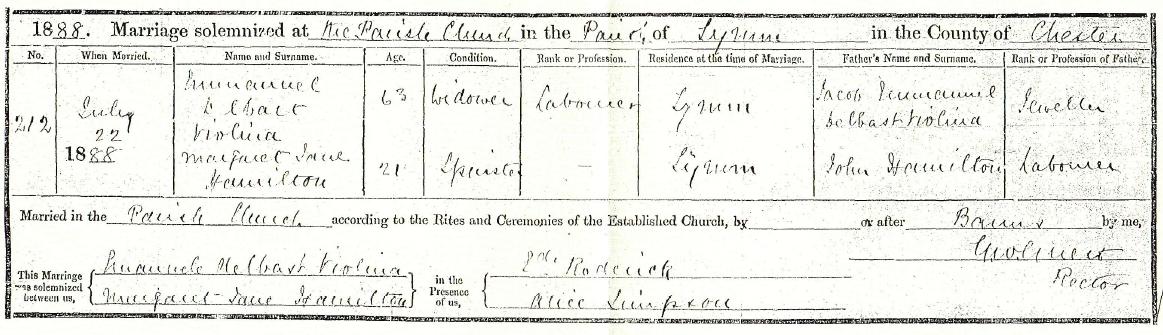 1888. Marriage solemnized at the Parish Church in the Parish of Lymm in the County of Chester
No. When Married. Name and Surname. Age. Condition. Rank or Profession. Residence at the time of Marriage. Father's Name and Surname. Rank or Profession of Father.
212 July 22 1888 Emmanuel Delbast Violina 63 Widower Labourer Lymm Jacob Emmanuel Delbast Violina Jeweller
Margaret Jane Hamilton 21 Spinster — Lymm John Hamilton Labourer
Married in the Parish Church according to the Rites and Ceremonies of the Established Church, by or after Banns by me,
Rector
This Marriage was solemnized between us, Emanuele Delbast Violina in the Presence of us, Roderick
Margaret Jane Hamilton Alice Simpson